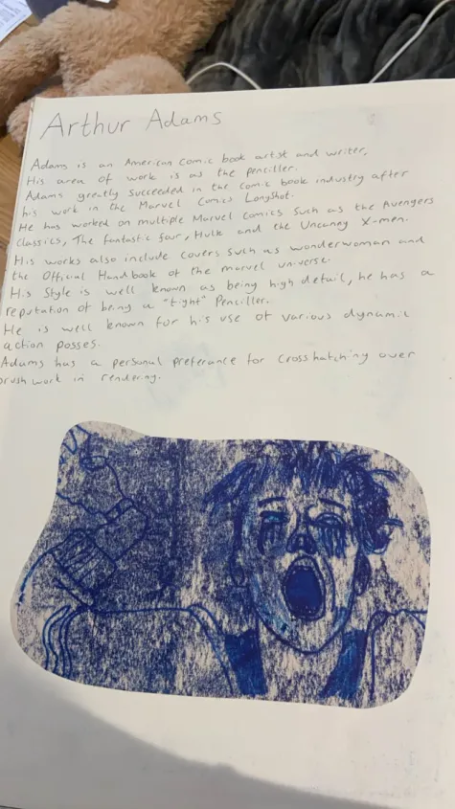 Arthur Adams
Adams is an American comic book artist and writer.
His area of work is as the penciller.
Adams greatly succeeded in the comic book industry after
his work in the Marvel Comics Longshot.
He has worked on multiple Marvel Comics such as the Avengers
classics, The fantastic four, Hulk and the Uncaney X-men.
His works also include covers such as wonderwoman and
the Official Handbook of the marvel universe.
His Style is well known as being high detail, he has a
reputation of being a "tight" Penciller.
He is well known for his use of various dynamic
action posses.
Adams has a personal preferance for crosshatching over
brush work in rendering.